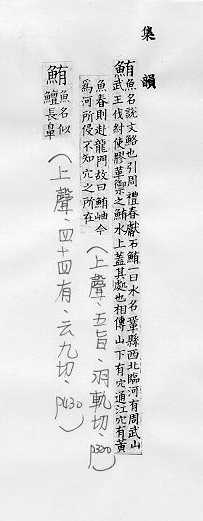 集韻
鮪魚名說文鮥也引周禮春獻石鮪一曰水名鞏縣西北臨河有周武山
武王伐紂使膠革禦之鮪水上蓋其處也相傳山下有穴通江穴有黃
魚春則赴龍門故曰鮪岫今
為河所侵不知穴之所在
(上聲、五旨、羽軌切、p320)
鮪魚名似
鱣長鼻
(上聲、四十四有、云九切、p430)